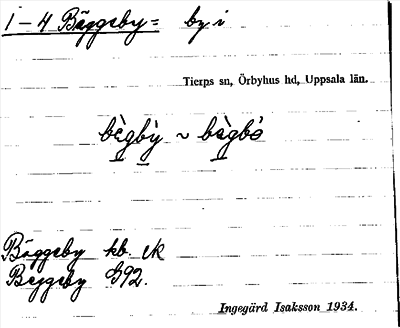 1–4 Bäggeby= by i
Tierps sn, Örbyhus hd, Uppsala län.
bègbỳ ~ bègbò
Bäggeby kb. ek
Beggeby G92.
Ingegärd Isaksson 1934.